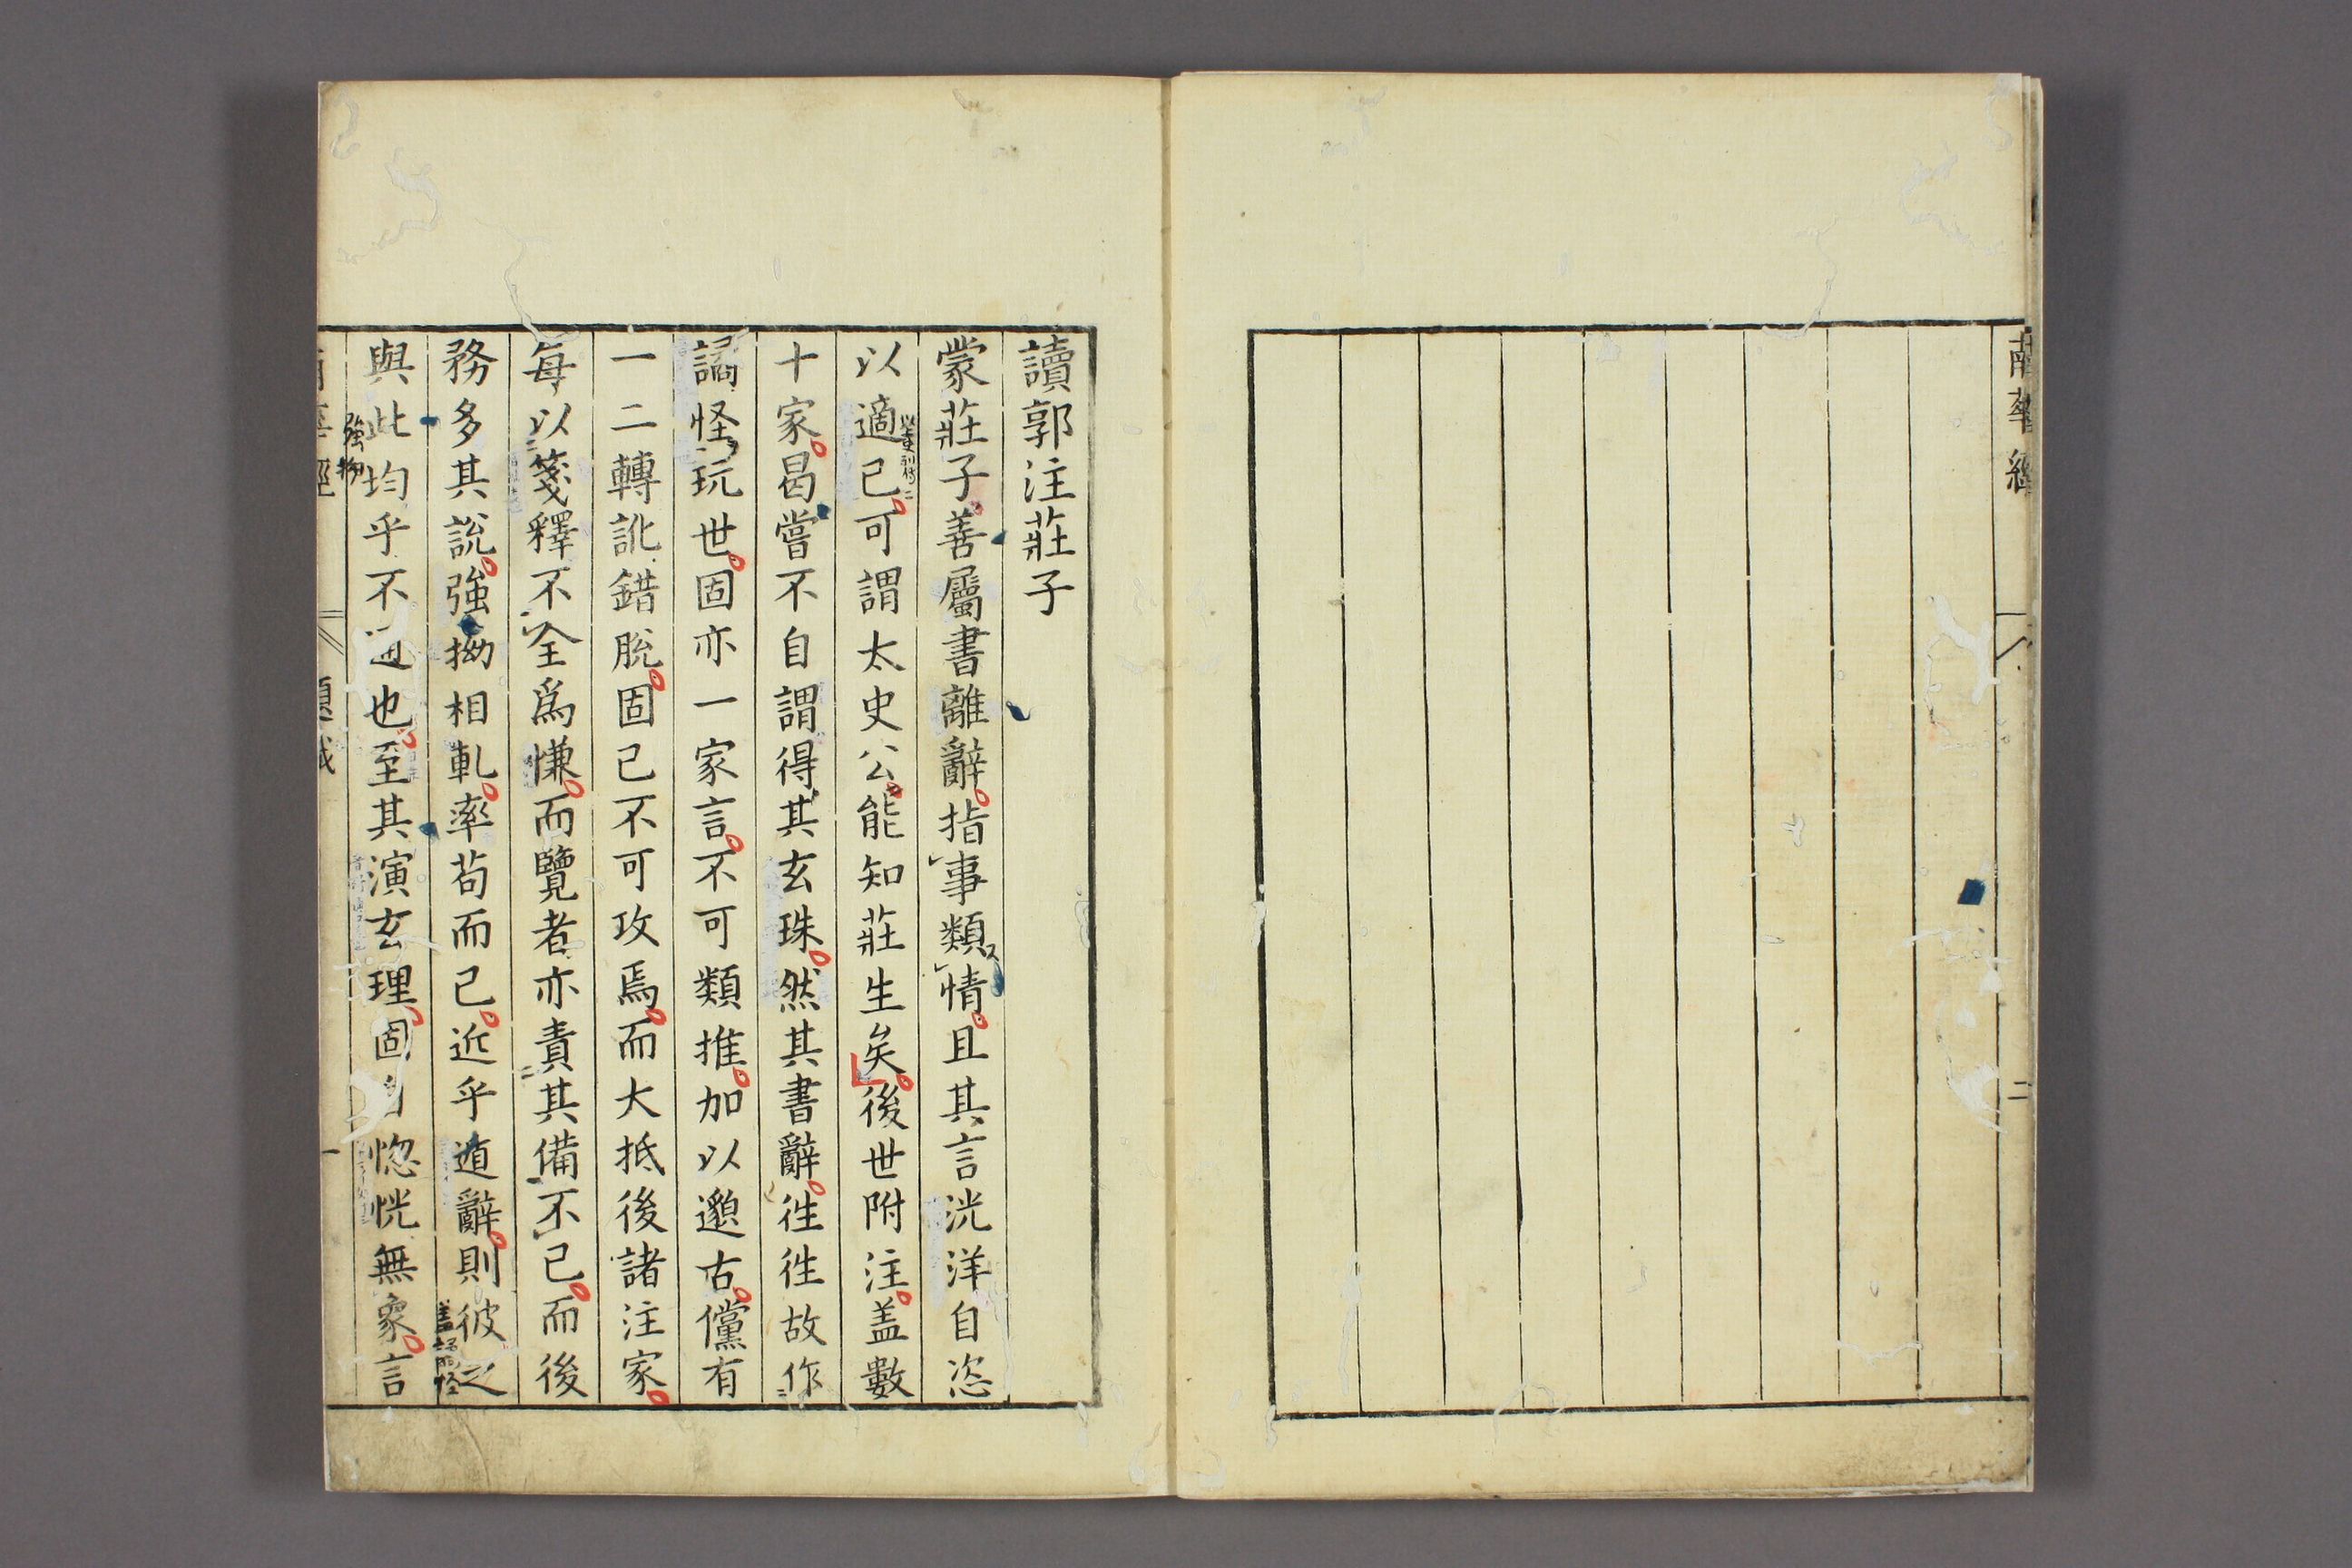 南華經
二
讀郭注莊子
蒙莊子善屬書離辭指事類情且其言洸洋自恣
以適已可謂太史公能知莊生矣後世附注盖數
十家曷嘗不自謂得其玄珠然其書辭徃徃故作
譎怪玩世固亦一家言不可類推加以邈古儻有
一二轉訛錯脫固已不可攻焉而大抵後諸注家
每以箋釋不全爲慊而覽者亦責其備不已而後
務多其說強拗相軋率茍而已近乎遁辭則彼之
與此均乎不通也至其演玄理固自惚恍無象言
強拗
南華經
題
一